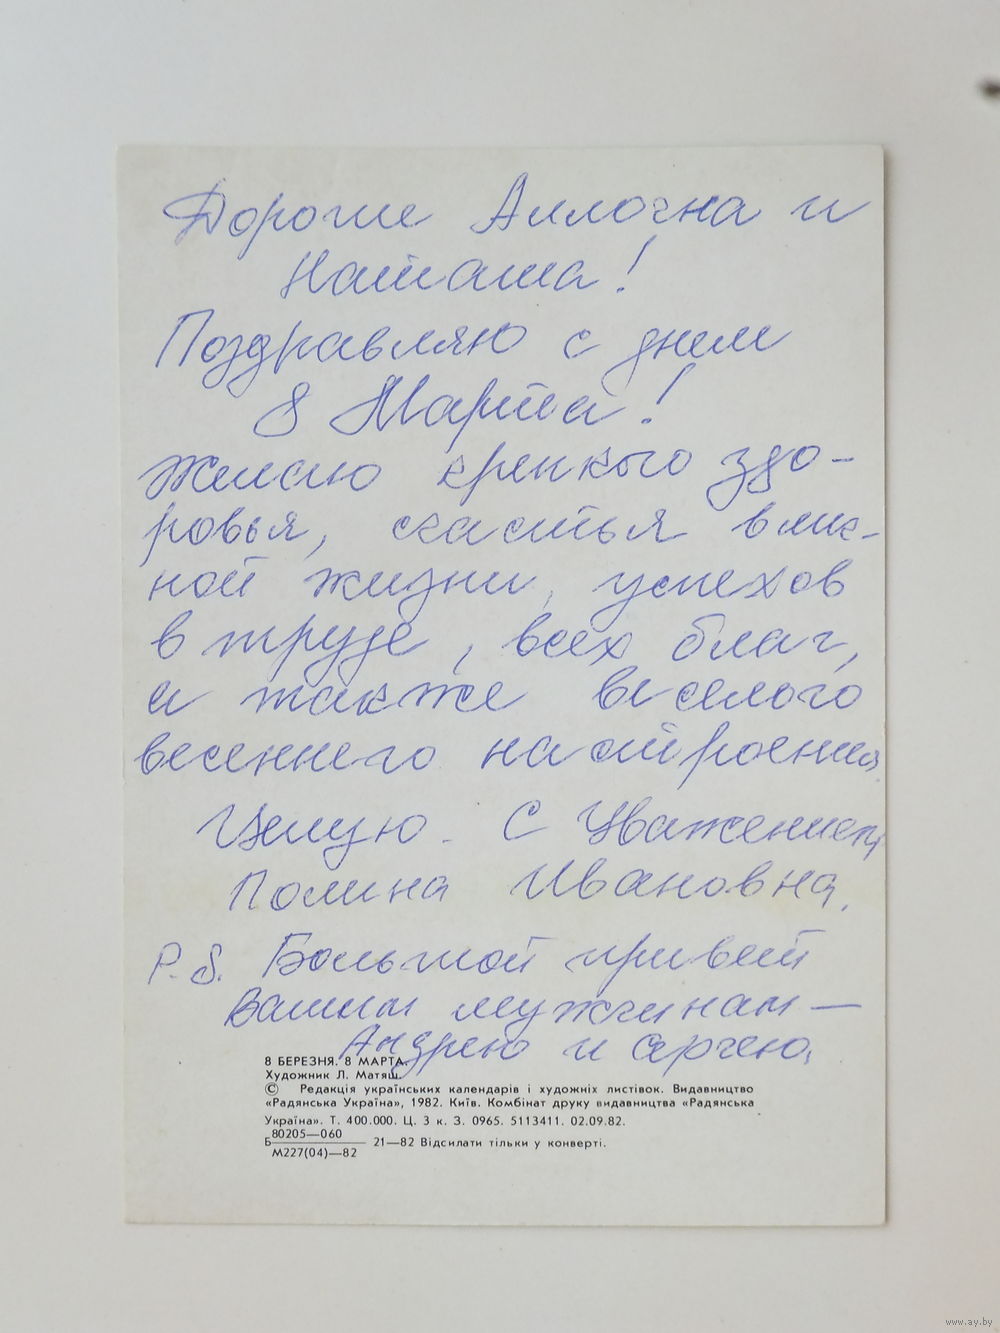 Дорогие Аллочка и
Наташа!
Поздравляю с днем
8 Марта!
Желаю крепкого здо-
ровья, счастья в лич-
ной жизни, успехов
в труде, всех благ,
а также веселого
весеннего настроения.
Целую. С Уважением
Полина Ивановна.
P.S. Большой привет
Вашим мужчинам —
Андрею и Сергею.
8 БЕРЕЗНЯ. 8 МАРТА.
Художник Л. Матяш.
© Редакція українських календарів і художніх листівок. Видавництво
«Радянська Україна», 1982. Київ. Комбінат друку видавництва «Радянська
Україна». Т. 400.000. Ц. 3 к. З. 0965. 5113411. 02.09.82.
Б 80205—060
М227(04)—82 21—82 Відсилати тільки у конверті.
www.ay.by